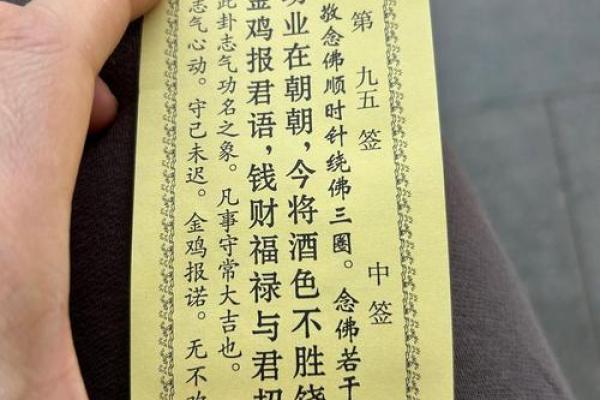 第 九五 签 中签
敬念佛顺时针绕佛三圈。念佛若干
业在朝朝，今将酒色不胜饶
金鸡报君语，钱财福禄与君招
此卦志气功名之象。凡事守常大吉也。
志气心动。守己未迟。金鸡报诺。无不